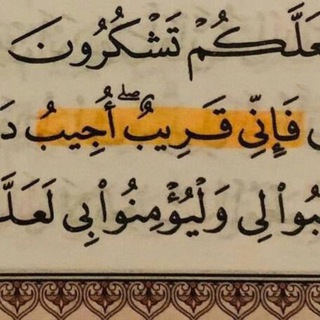 عَلَّكُمْ تَشْكُرُونَ
فَإِنِّي قَرِيبٌ ۖ أُجِيبُ دَ
بُوا۟ لِي وَلْيُؤْمِنُوا۟ بِي لَعَلَّ